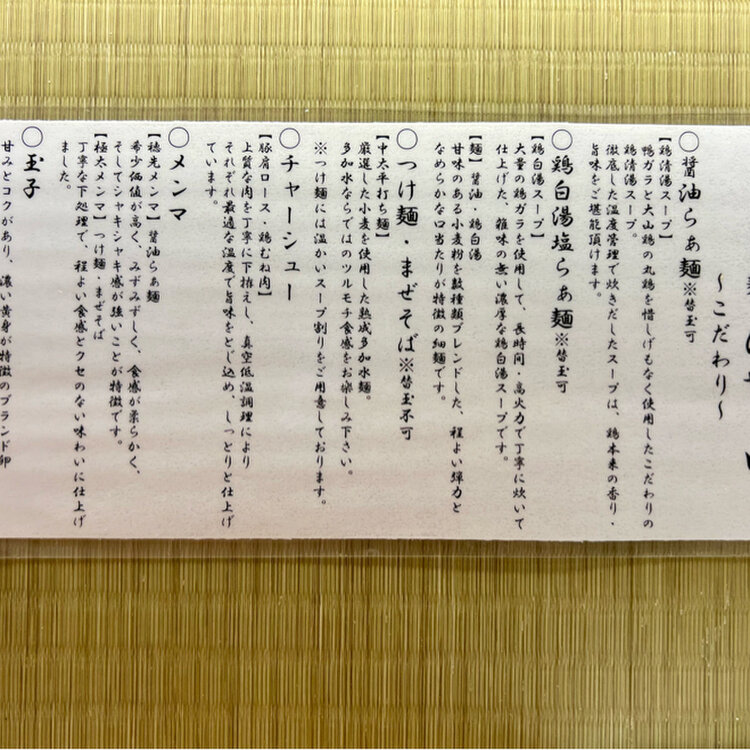 〜こだわり〜
○醤油らぁ麺※替玉可
【鶏清湯スープ】
鴨ガラと大山鶏の丸鶏を惜しげもなく使用したこだわりの
鶏清湯スープ。
徹底した温度管理で炊きだしたスープは、鶏本来の香り・
旨味をご堪能頂けます。
○鶏白湯塩らぁ麺※替玉可
【鶏白湯スープ】
大量の鶏ガラを使用して、長時間・高火力で丁寧に炊いて
仕上げた、雑味の無い濃厚な鶏白湯スープです。
【麺】醤油・鶏白湯
甘味のある小麦粉を数種類ブレンドした、程よい弾力と
なめらかな口当たりが特徴の細麺です。
○つけ麺・まぜそば※替玉不可
【中太平打ち麺】
厳選した小麦を使用した熟成多加水麺。
多加水ならではのツルモチ食感をお楽しみ下さい。
※つけ麺には温かいスープ割りをご用意しております。
○チャーシュー
【豚肩ロース・鶏むね肉】
上質な肉を丁寧に下拵えし、真空低温調理により
それぞれ最適な温度で旨味をとじ込め、しっとりと仕上げ
ています。
○メンマ
【穂先メンマ】醤油らぁ麺
希少価値が高く、みずみずしく、食感が柔らかく、
そしてシャキシャキ感が強いことが特徴です。
【極太メンマ】つけ麺・まぜそば
丁寧な下処理で、程よい食感とクセのない味わいに仕上げ
ました。
○玉子
甘みとコクがあり、濃い黄身が特徴のブランド卵